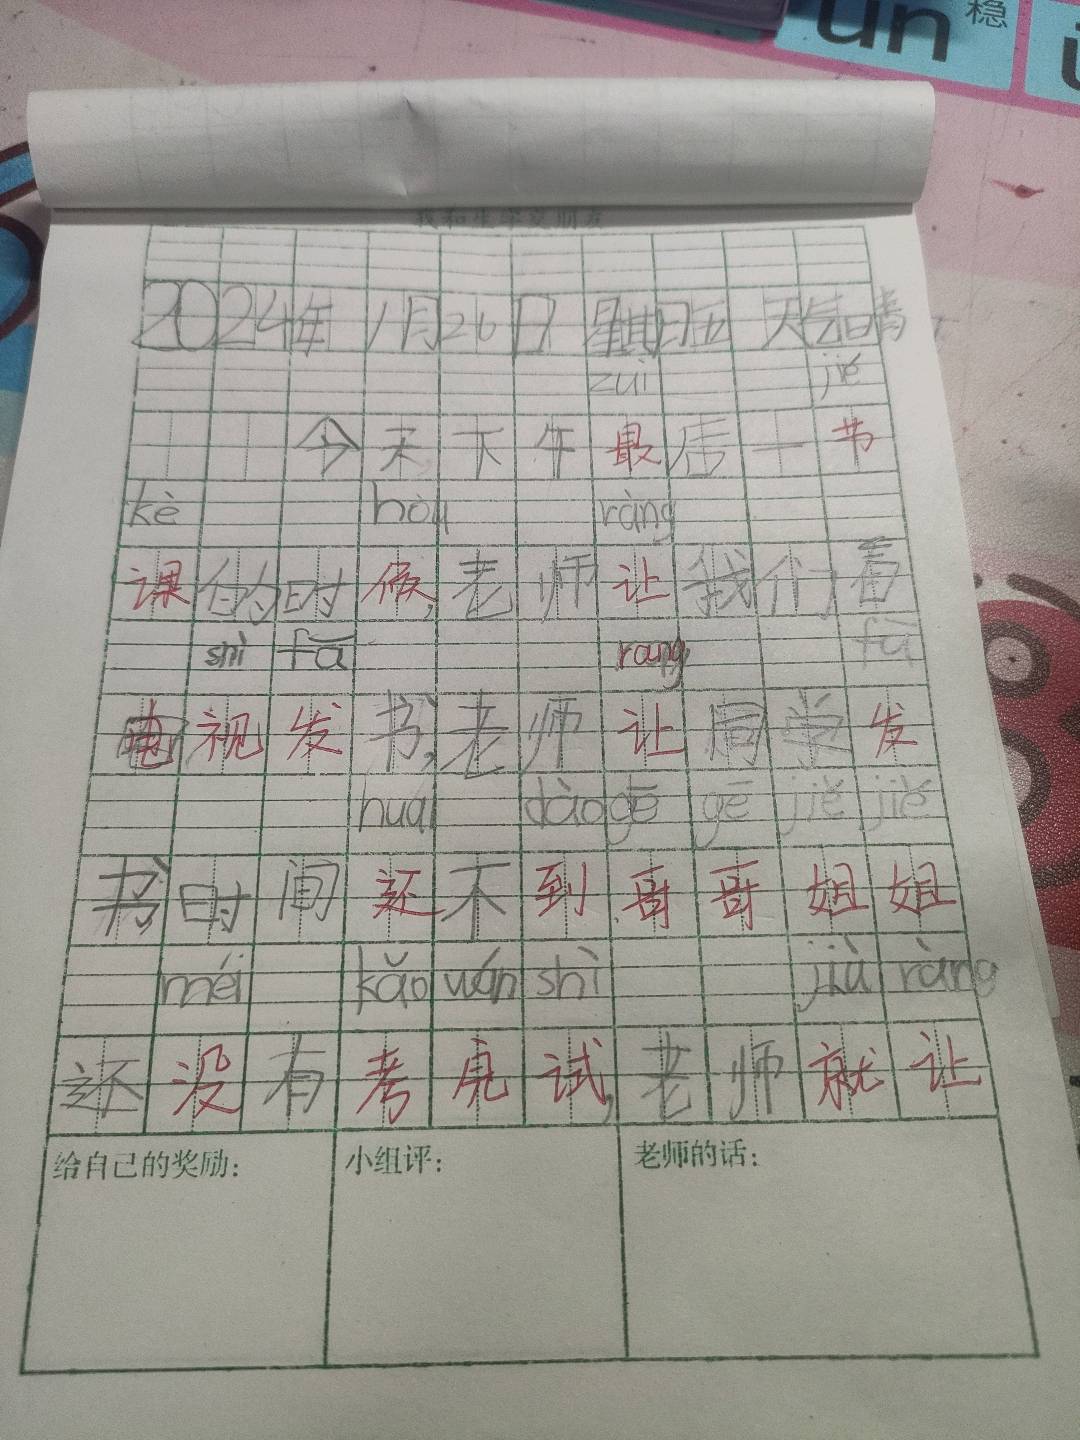 ün 稳
我和生字交朋友
2024年1月26日 星期日五 天气晴
zuì jié
今天下午最后一节
kè hòu ràng
课的时候,老师让我们看
shì fā rang fā
电视发书,老师让同学发
huái dào gē gē jiě jiě
书时间还不到哥哥姐姐
méi kǎo wán shì jiù ràng
还没有考完试,老师就让
给自己的奖励: 小组评: 老师的话: